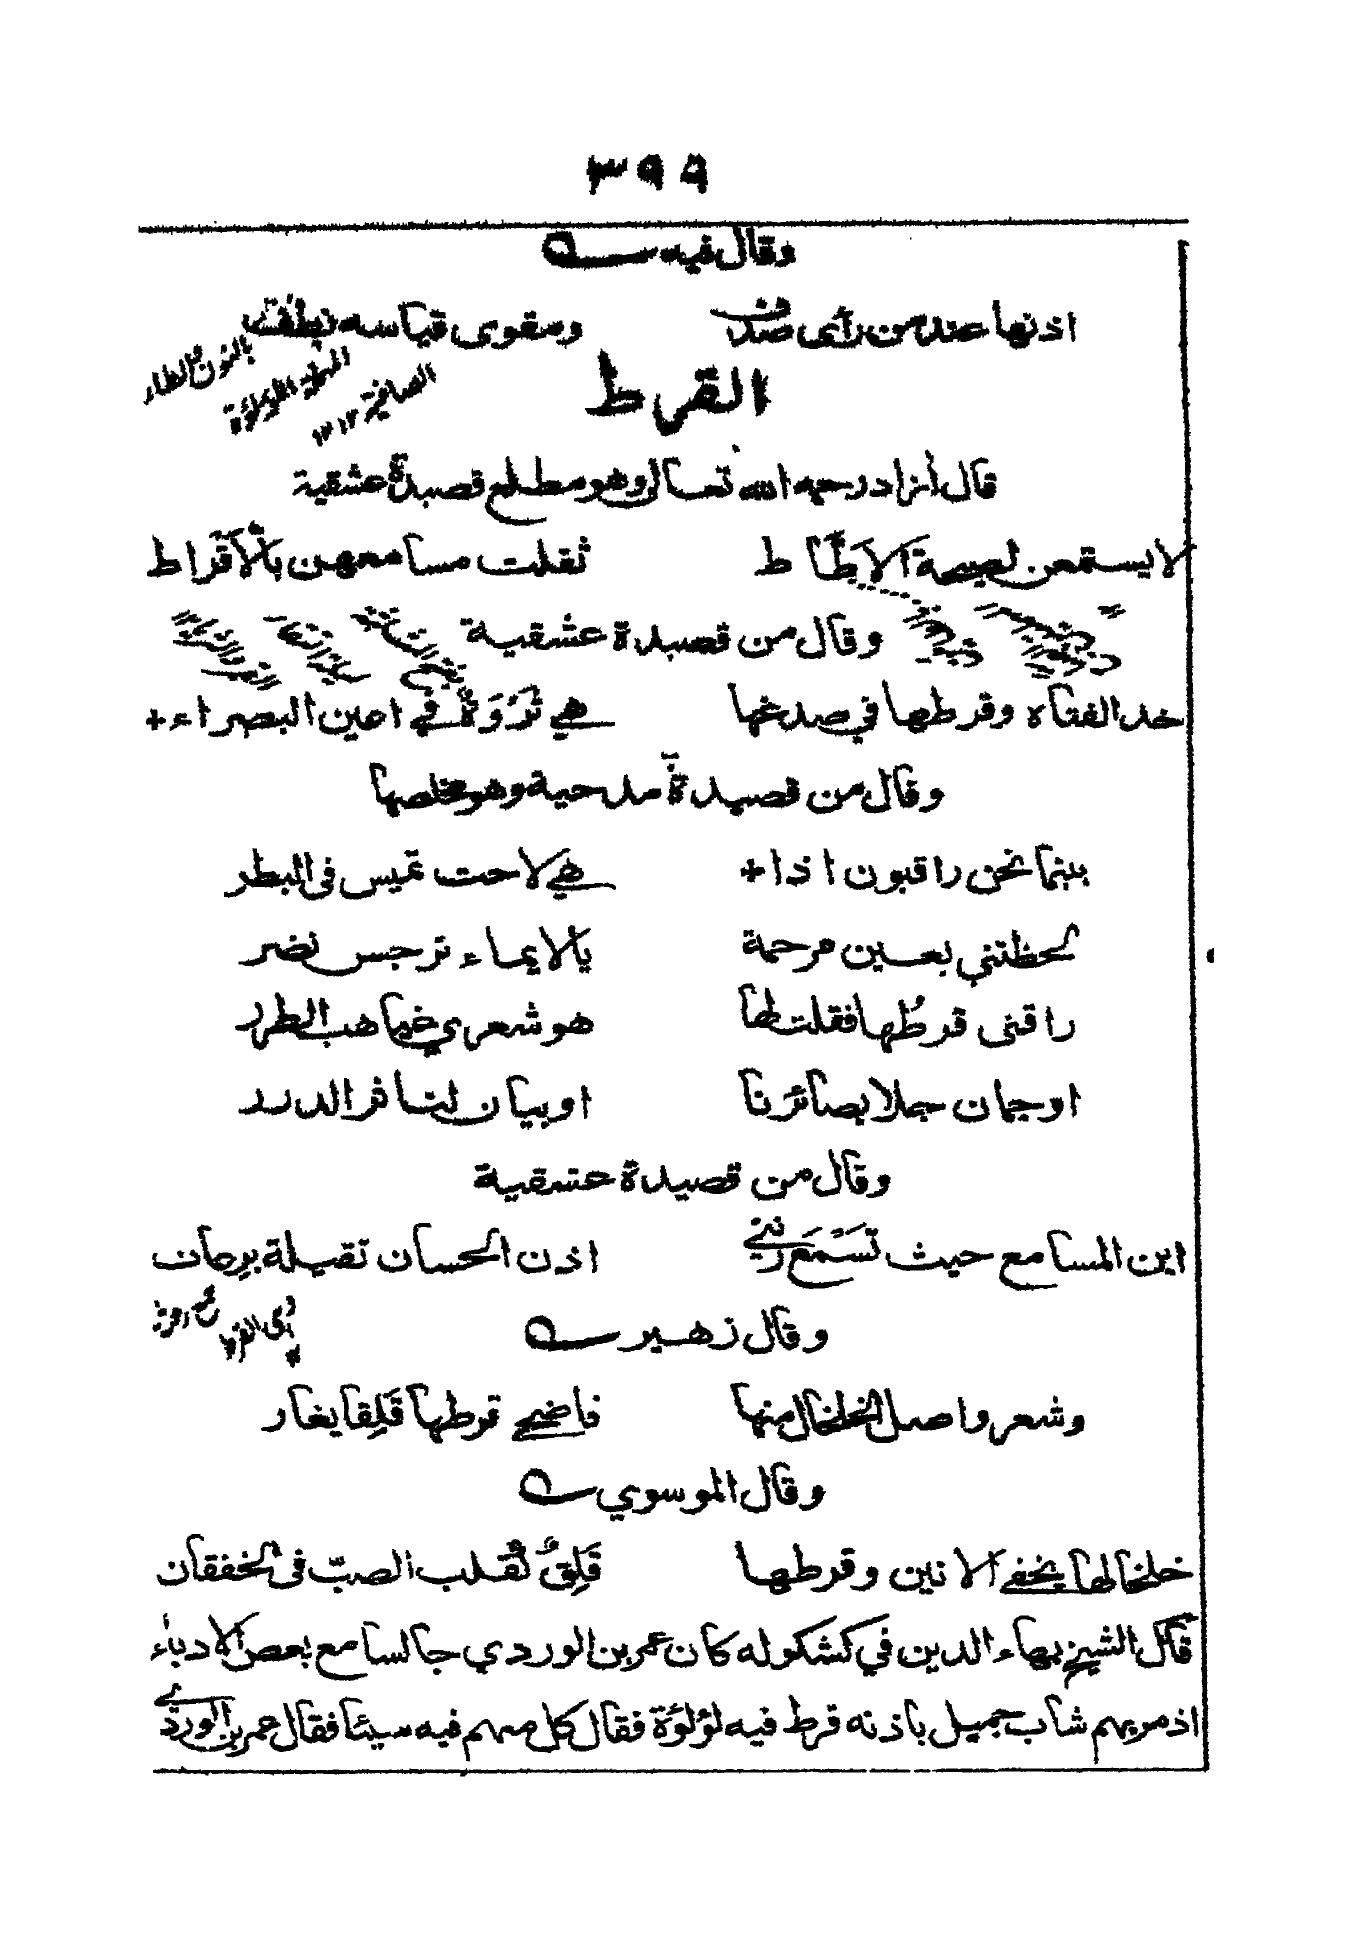 ٣٩٩
وقال فيه
اذنها عند من رأى صدف ومقوى قياسه نطف
بالنون والطاء
المهملة اللؤلؤة
الصافية ١٢ ١٢
القرط
قال أزاد رحمه الله تعالى وهو مطلع قصيدة عشقية
لا يستمعن لصيحة الأطّاط ثقلت مسامعهن بالأقراط
وقال من قصيدة عشقية
خد الفتاه وقرطها في صدغها هي ثروة في اعين البصراء +
وقال من قصيدة مدحية وهو مخلصها
بينما نحن راقبون اذا + هي لاحت تميس في البطر
لحظتني بعين مرحمة يالايماء نرجس نضر
راقنى قرطها فقلت لها هو شعري خباهب الطرر
او جمان جلا بصائرنا او بيان لنا فر الدرر
وقال من قصيدة عشقية
اين المسامع حيث تسمع رنتي اذن الحسان ثقيلة برعان
وقال زهير
وشعر واصل الخلخال منها فاضحى قرطها قلقا يغار
وقال الموسوي
خلخالها يخفي الانين وقرطها قلق لقلب الصبّ في الخفقان
قال الشيخ بهاء الدين في كشكوله كان عمر بن الوردي جالسا مع بعض الادباء
اذ مر بهم شاب جميل باذنه قرط فيه لؤلؤة فقال كل منهم فيه سيئا فقال عمر بن الوردي